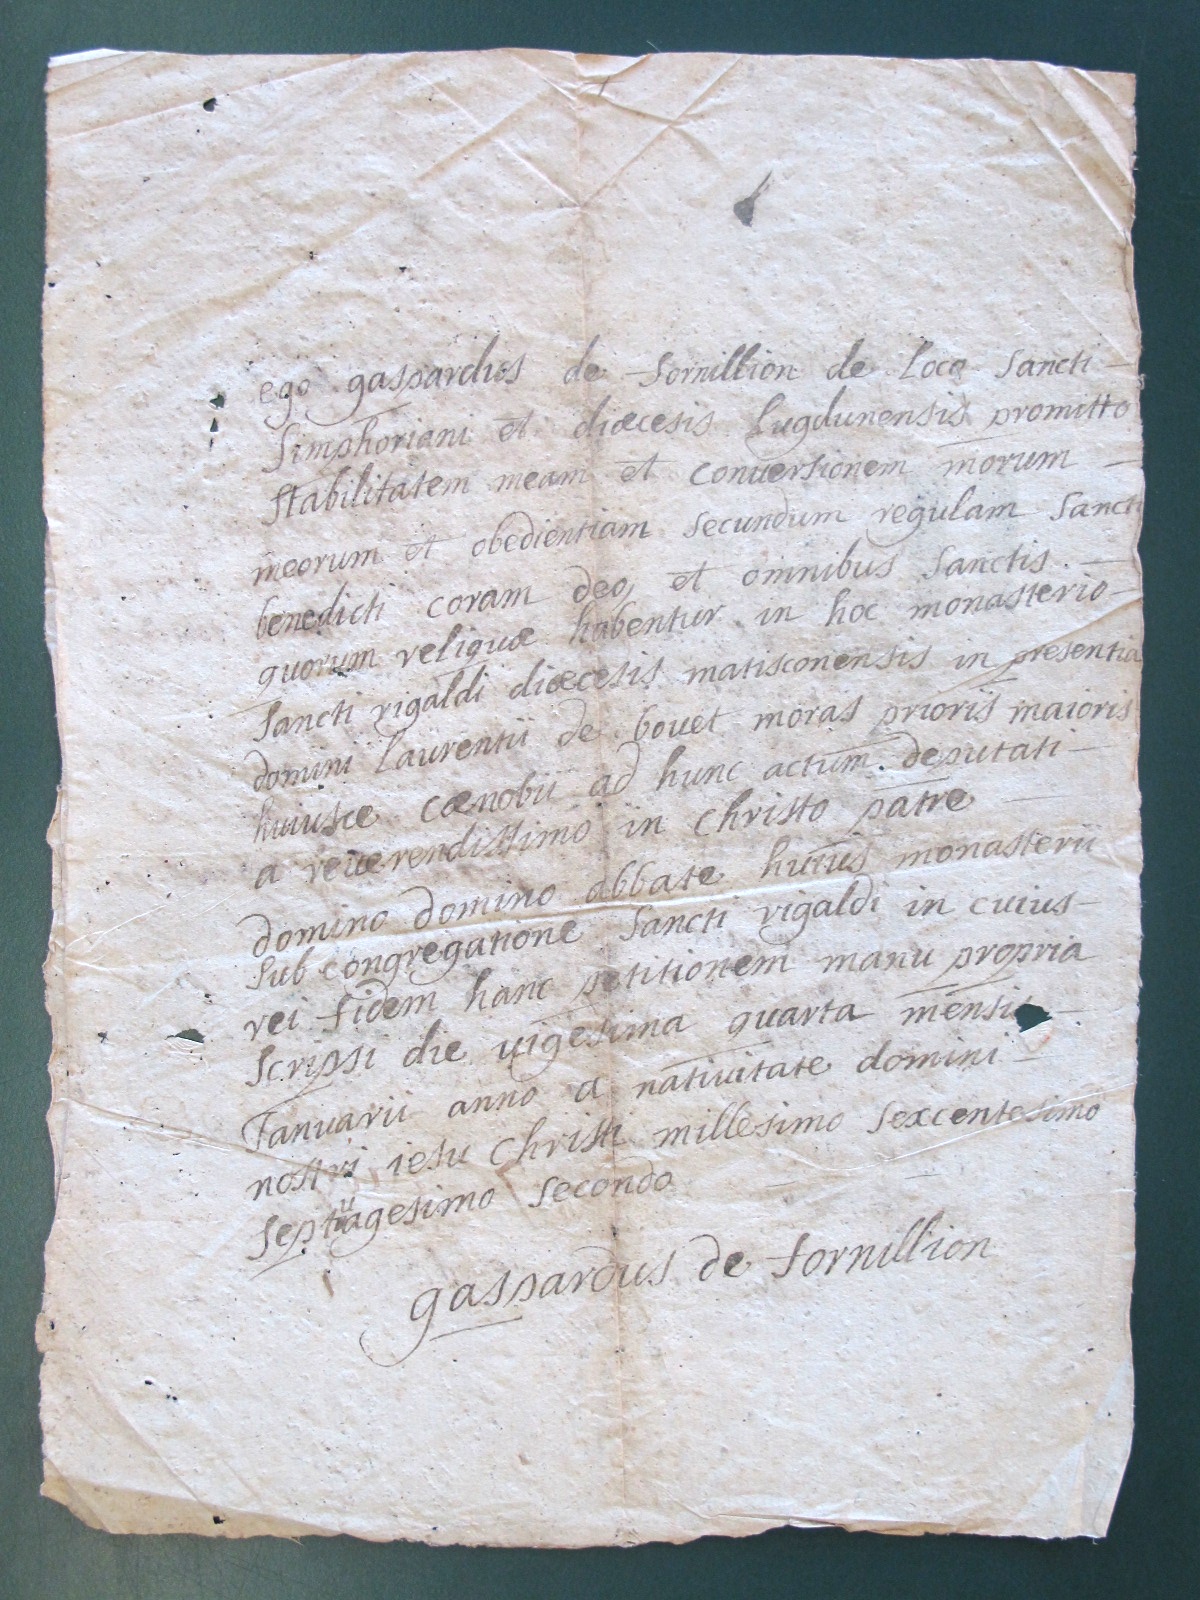 ego gaspardus de fornillion de loco sancti
simphoriani et diœcesis lugdunensis promitto
stabilitatem meam et conversionem morum
meorum et obedientiam secundum regulam sancti
benedicti coram deo, et omnibus sanctis
quorum reliquæ habentur in hoc monasterio
sancti rigaldi diœcesis matisconensis in presentia
domini laurentii de bouet moras prioris maioris
huiusce cœnobii ad hunc actum deputati
a reuerendissimo in christo patre
domino domino abbate huius monasterii
sub congregatione sancti rigaldi in cuius
rei fidem hanc petitionem manu propria
scripsi die uigesima quarta mensis
Ianuarii anno a natiuitate domini
nostri iesu christi millesimo sexcentesimo
septuagesimo secondo
gaspardus de fornillion